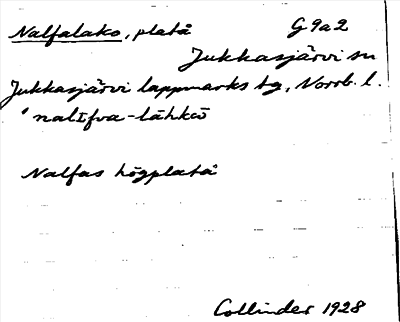 Nalfalako, platå G9a2
Jukkasjärvi sn
Jukkasjärvi lappmarks tg, Norrb. l.
'nalIfva-lāhkō
Nalfas högplatå
Collinder 1928